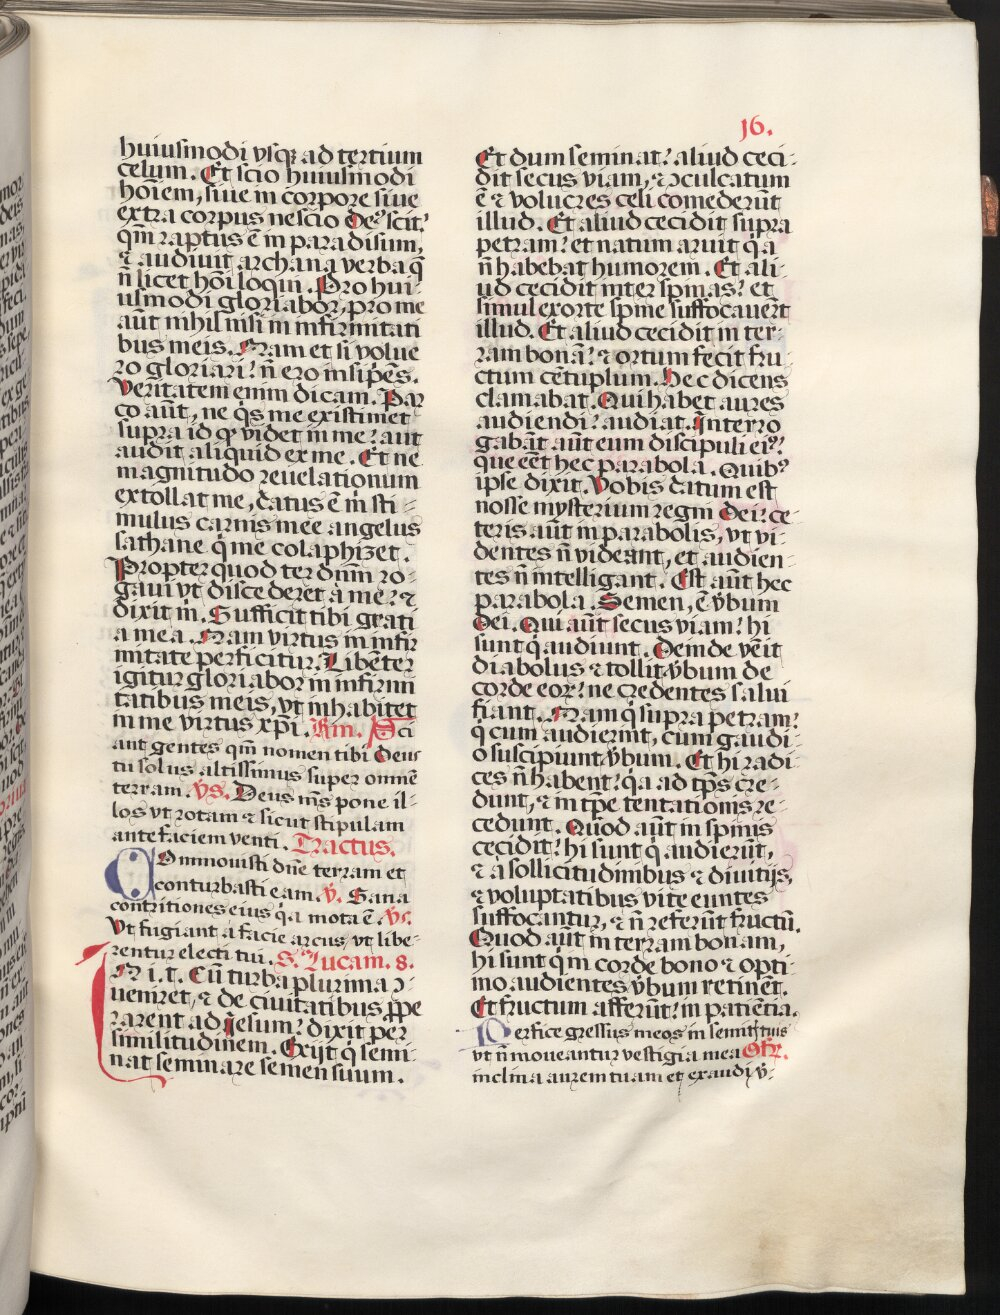 16.
huiusmodi vsqꝫ ad tertium
celum. Et scio huiusmodi
hoīem, siue in corpore siue
extra corpus nescio Deꝰ scit.
qm̄ raptus ē in paradisum,
⁊ audiuit archana verba q̄
n̄ licet hoī loqui. Pro hui-
usmodi gloriabor, pro me
aūt nihil nisi in infirmitati
bus meis. Nam et si volue
ro gloriari: n̄ ero insipēs.
Veritatem enim dicam. Par
co aūt, ne q̇s me existimet
supra id qꝙ videt in me: aut
audit aliquid ex me. Et ne
magnitudo reuelationum
extollat me, datus ē m̄ sti-
mulus carnis mee angelus
sathane q̇ me colaphizet.
Propter quod ter dn̄m ro-
gaui vt discederet a me: ⁊
dixit m̄. Sufficit tibi grati
a mea. Nam virtus in infir
mitate perficitur. Libēter
igitur gloriabor in infirmi
tatibus meis, vt inhabitet
in me virtus xp̄i. Rm. Sci
ant gentes qm̄ nomen tibi Deus
tu solus altissimus super omnē
terram. vs. Deus m̄s pone il-
los vt rotam ⁊ sicut stipulam
ante faciem venti. Tractus.
Commouisti dn̄e terram et
conturbasti eam. v̇. Sana
contritiones eius q̇a mota ē. vs.
Vt fugiant a facie arcus, vt libe-
rentur electi tui. S. Lucam. 8.
IN i. t. Cū turba plurima ↄ-
ueniret, ⁊ de ciuitatibus ꝓpe
rarent ad Iesum: dixit per
similitudinem. Exijt q̇ semi-
nat seminare semen suum.
Et dum seminat: aliud ceci-
dit secus viam, ⁊ ↄculcatum
ē ⁊ volucres celi comederūt
illud. Et aliud cecidit supra
petram: et natum aruit q̇a
n̄ habebat humorem. Et ali-
ud cecidit inter spinas: et
simul exorte spine suffocauerūt
illud. Et aliud cecidit in ter-
ram bonā: ⁊ ortum fecit fru
ctum cētuplum. Hec dicens
clamabat. Qui habet aures
audiendi: audiat. Interro
gabāt aūt eum discipuli eiꝰ:
que eēt hec parabola. Quibꝰ
ipse dixit. Vobis datum est
nosse mysterium regni Dei: ce-
teris aūt in parabolis, vt vi-
dentes n̄ videant, et audien-
tes n̄ intelligant. Est aūt hec
parabola. Semen, ē v̄bum
Dei. Qui aūt secus viam: hi
sunt q̇ audiunt. Deinde veīt
diabolus ⁊ tollit v̄bum de
corde eoꝝ: ne credentes salui
fiant. Nam q̇ supra petram:
q̇ cum audierint, cum gaudi-
o suscipiunt v̄bum. Et hi radi-
ces n̄ habent: q̇a ad tp̄s cre-
dunt, ⁊ in tp̄e tentationis re-
cedunt. Quod aūt in spinis
cecidit: hi sunt q̇ audierūt,
⁊ a sollicitudinibus ⁊ diuitijs,
⁊ voluptatibus vite euntes
suffocantur, ⁊ n̄ referūt fructū.
Quod aūt in terram bonam,
hi sunt q̇ in corde bono ⁊ opti-
mo audientes v̄bum retinēt.
Et fructum afferūt in patiētia.
Perfice gressus meos in semitis tuis
vt n̄ moueantur vestigia mea Off̄.
inclina aurem tuam et exaudi v̄-